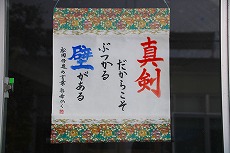 真剣
だからこそ
ぶつかる
壁がある